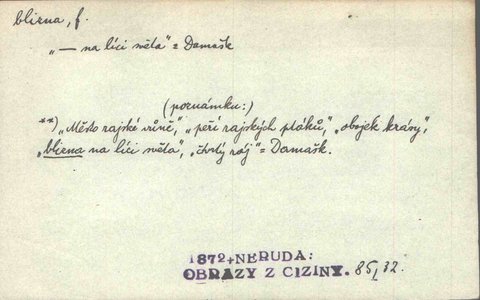 blizna, f.
„— na líci světa" = Damašk
(poznámku:)
**) „Město rajské vůně", „peří rajských ptáků", „obojek krásy",
„blizna na líci světa", „čtvrtý ráj" = Damašk.
1872+NERUDA:
OBRAZY Z CIZINY. 85/32.